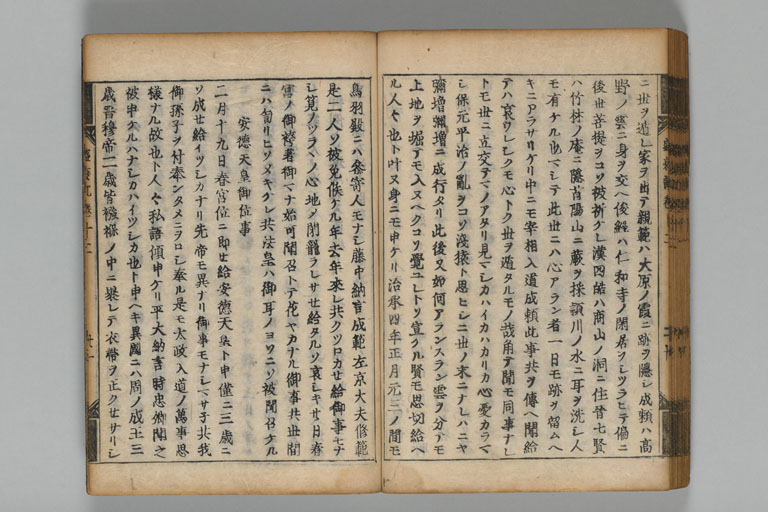 ニ世ヲ遁レ家ヲ出テ親範ハ大原ノ霞ニ跡ヲ隠シ成頼ハ高
野ノ雲ニ身ヲ交ヘ俊經ハ仁和寺ノ閑居ヲシツラヒテ偏ニ
後世菩提ヲコソ被祈ケレ漢四皓ハ商山ノ洞ニ住晉七賢
ハ竹林ノ庵ニ隠首陽山ニ蕨ヲ採頴川ノ水ニ耳ヲ洗シ人
モ有ケル也マシテ此世ニハ心アラン者一日モ跡ヲ留ムヘ
キニアラサリケリ中ニモ宰相入道成頼此事共ヲ傳ヘ聞給
テハ哀ワレシクモ心トク世ヲ遁タルモノ哉角テ聞モ同事ナレ
トモ世ニ立交テマノアタリ見マシカハイカハカリカ心憂カラマ
シ保元平治ノ亂ヲコソ淺猿ト思ヒシニ世ノ末ニナレハニヤ
彌増〻増ニ成行タリ此後又如何アランスラン雲ヲ分テモ
上地ヲ堀テモ入ヌヘクコソ覺ユレトソ宣ケル賢モ思切給ヘ
ル人〻也ト叶ヌ身ニモ申ケリ治承四年正月元三ノ間モ
鳥羽殿ニハ參寄人モナシ藤中納言成範左京大夫脩範
是二人ソ被免候ケル年去年來レ共クツロカセ給御事モナ
シ筧ノツラヽノ心地〆閉籠ラレサセ給タルソ哀シキ廿日春
宮ノ御袴著御マナ始可聞召トテ花ヤカナル御事共世間
ニハ匂リヒソメキケレ共法皇ハ御耳ノヨソニソ被聞召ケル
安德天皇御位事
二月十九日春宮位ニ即セ給安德天皇ト申僅ニ三歳ニ
ソ成セ給イツシカナリ先帝モ異ナリ御事モナシマサ子共我
御孫子ヲ付奉ンタメニヲロシ奉ル是モ太政入道ノ萬事思
様ナル故也ト人〻私語傾申ケリ平大納言時忠卿聞之
被申ケルハナシカハイツシカ也ト申ヘキ異國ニハ周ノ成王三
歳晉穆帝二歳皆襁褓ノ中ニ裹レテ衣帶ヲ正クセサリシ